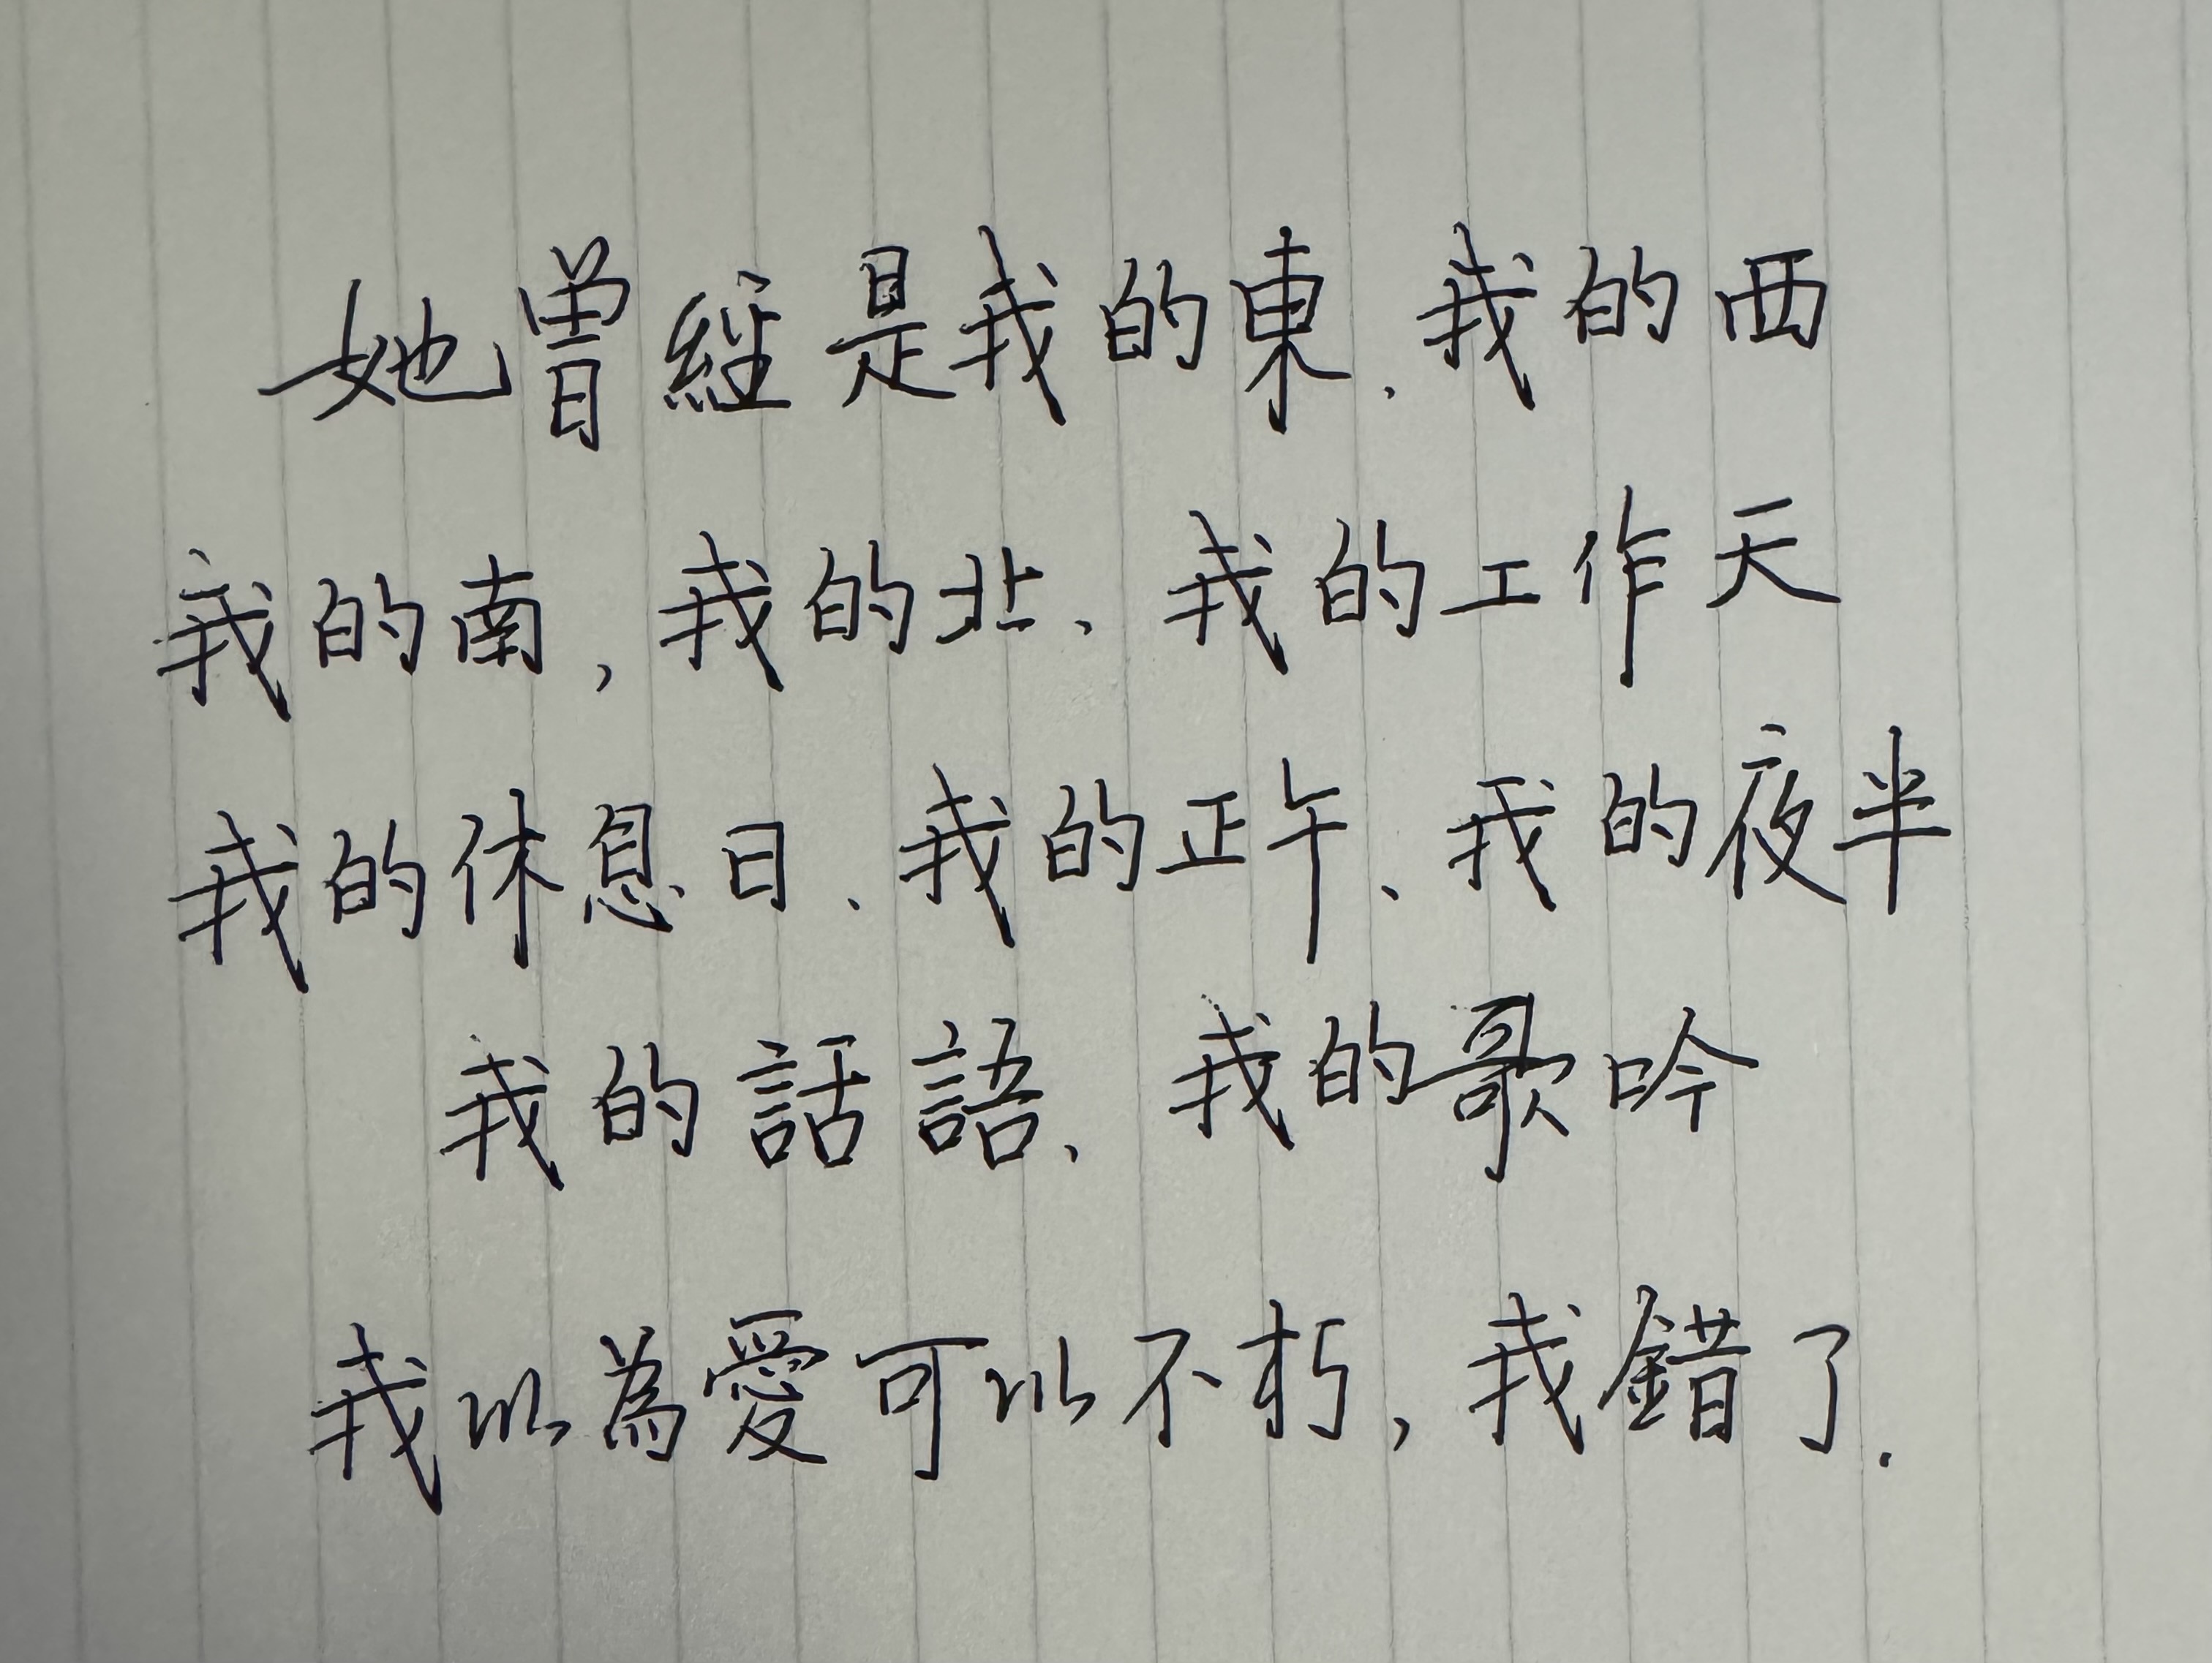 她曾經是我的東、我的西
我的南，我的北、我的工作天
我的休息日、我的正午、我的夜半
我的話語、我的歌吟
我以為愛可以不朽，我錯了.